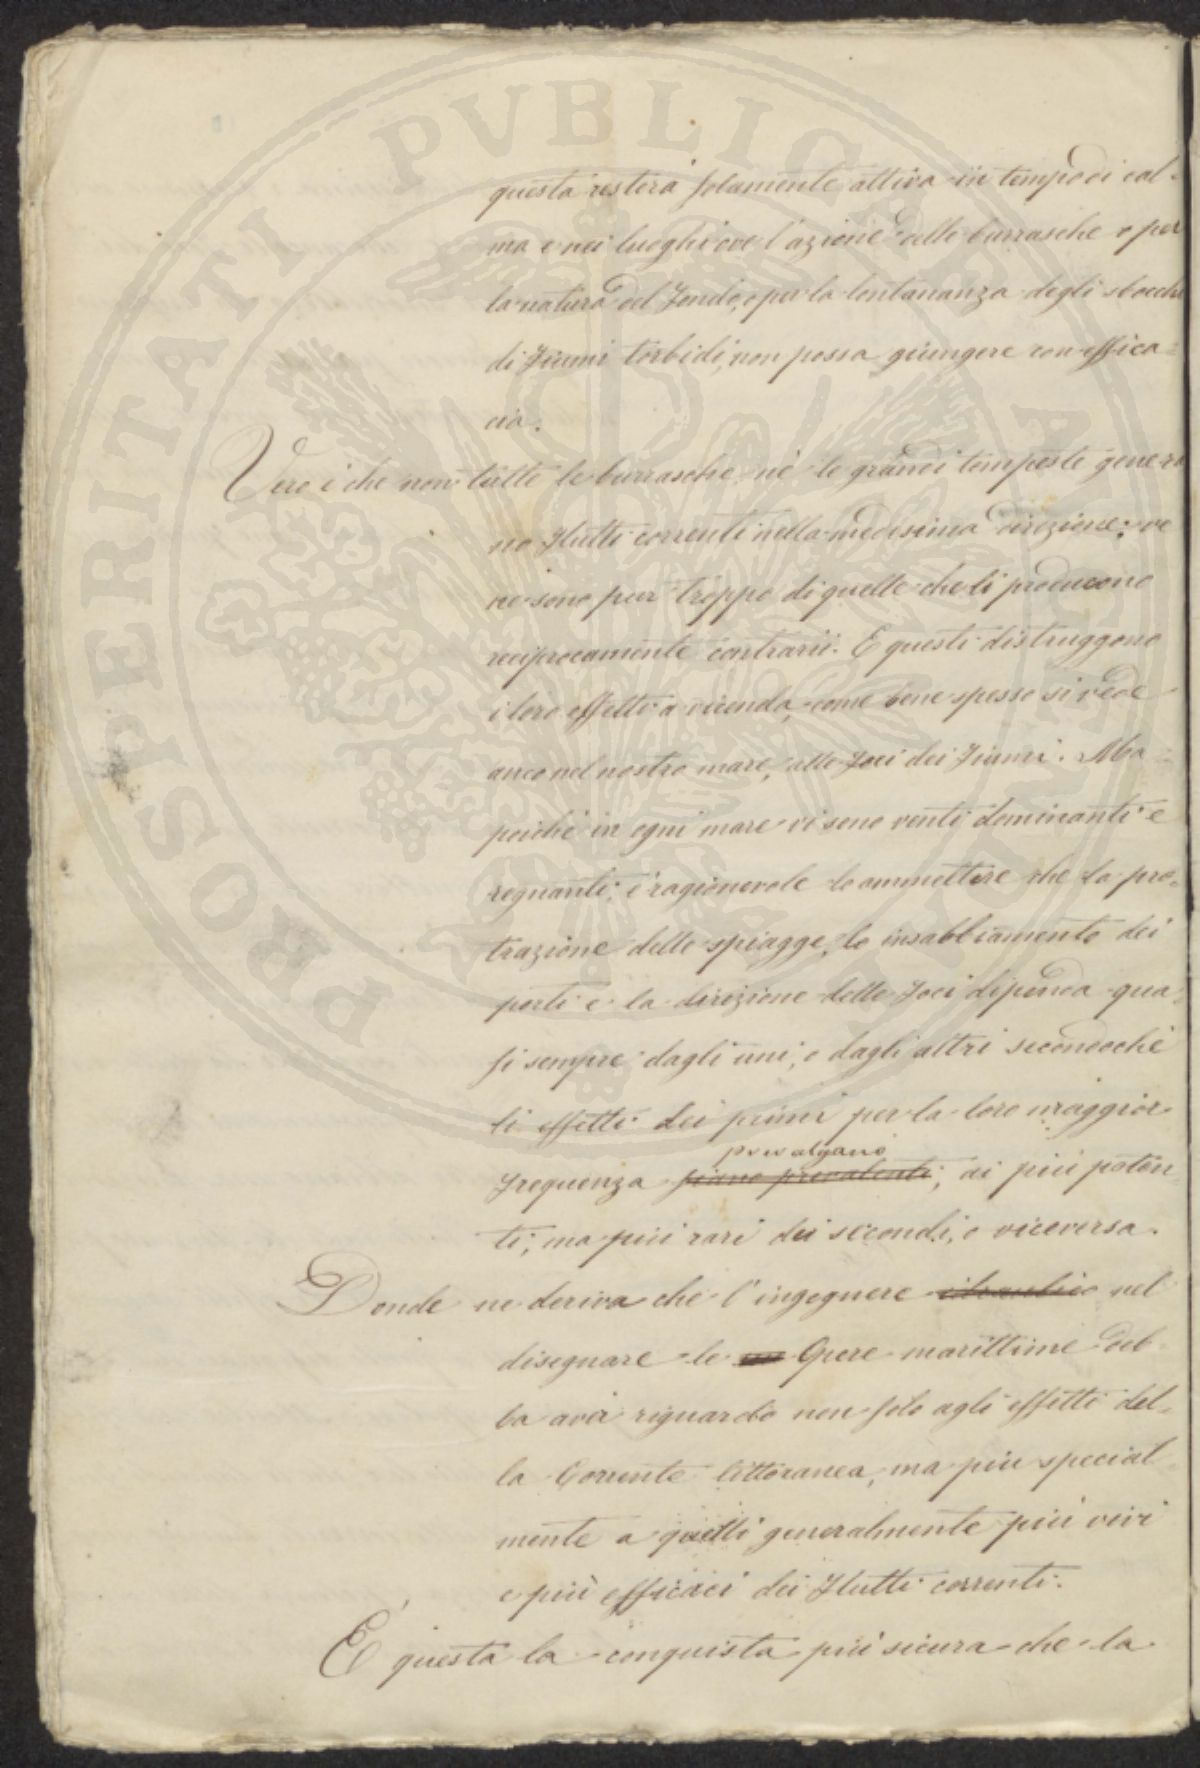 questa resterà solamente attiva in tempo di cal-
ma e nei luoghi ove l'azione delle burrasche o per
la natura del fondo, o per la lontananza degli sbocchi
di fiumi torbidi, non possa giungere con effica=
cia.
Vero è che non tutte le burrasche nè le grandi tempeste genera
no flutti correnti nella medesima direzione; ve
ne sono pur troppo di quelle che li producono
reciprocamente contrarii. E questi distruggono
i loro effetti a vicenda, come bene spesso si vede
anco nel nostro mare, alle foci dei fiumi. Ma
poichè in ogni mare vi sono venti dominanti e
regnanti, è ragionevole lo ammettere che la pro=
trazione delle spiagge, lo insabbiamento dei
porti e la direzione delle foci dipenda qua
si sempre dagli uni, o dagli altri secondochè
li effetti dei primi per la loro maggior
prevalgano
frequenza siano prevalenti, ai più poten=
ti, ma più rari dei secondi, o viceversa.
Donde ne deriva che l'ingegnere idraulico nel
disegnare le Opere marittime deb
ba aver riguardo non solo agli effetti del=
la Corrente littoranea, ma più special
mente a quelli generalmente più vivi
e più efficaci dei flutti correnti.
È questa la conquista più sicura che la
PROSPERITATI PVBLICAE AVGENDAE